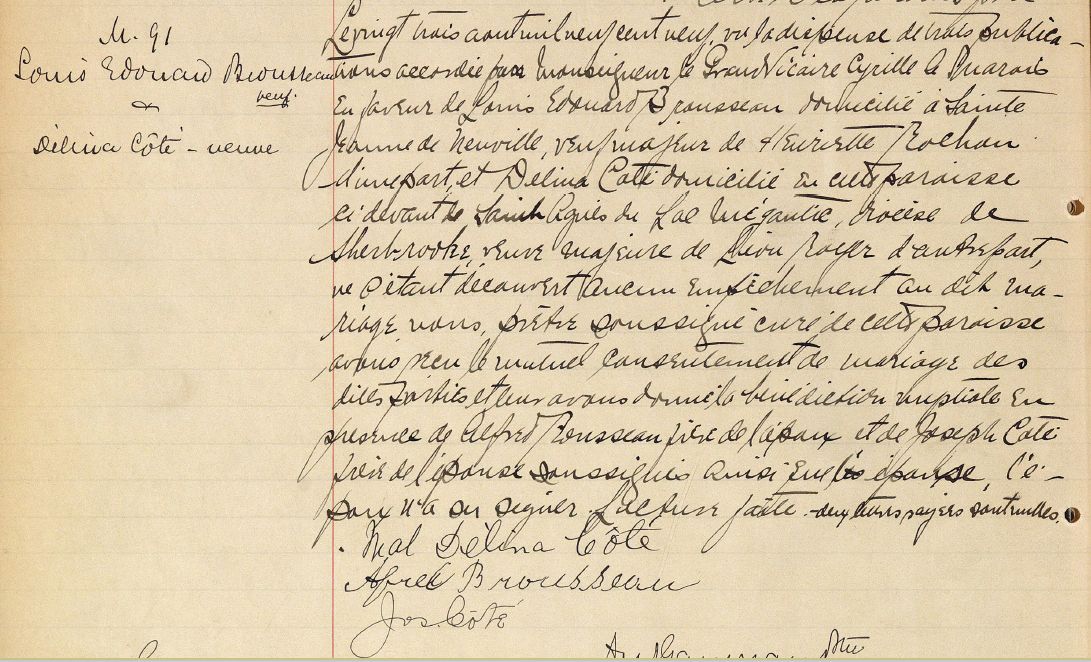 M. 91
Louis Edouard Brousseau
veuf.
&
Délina Côté - veuve
Le vingt trois aout mil neuf cent neuf, vu la dispense de trois publica-
tions accordée par Monseigneur le Grand Vicaire Cyrille A Marois
en faveur de Louis Edouard Brousseau domicilié à Sainte
Jeanne de Neuville, veuf majeur de Henriette Rochon
d'une part, et Délina Coté domicilié en cette paroisse
ci devant de Saint Agnès du Lac Mégantic, diocèse de
Sherbrooke, veuve majeure de Léon Royer d'autre part,
ne s'étant découvert aucun empêchement au dit ma-
riage nous, prêtre soussigné curé de cette paroisse
avons reçu le mutuel consentement de mariage des
dites parties et leur avons donné la bénédiction nuptiale en
presence de Alfred Brousseau frère de l'époux et de Joseph Coté
frère de l'épouse soussignés ainsi que épouse, l'é-
poux n'a su signer. Lecture faite. - deux mots rayés sont nulles.
Mal Délina Côté
Alfred Brousseau
Jos. Côté
Ptre